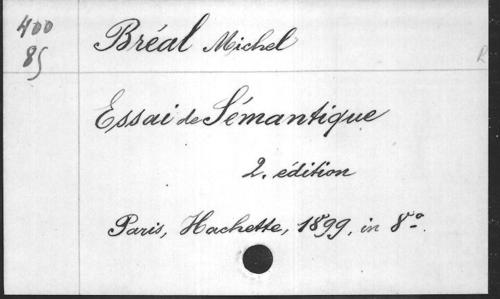 400 Bréal Michel
85
R
Essai de Sémantique
2. édition
Paris, Hachette, 1899, in 8º.